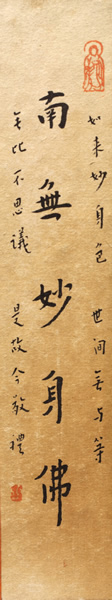 如来妙身色 世间无与等
南無妙身佛
无比不思議 是故今敬禮